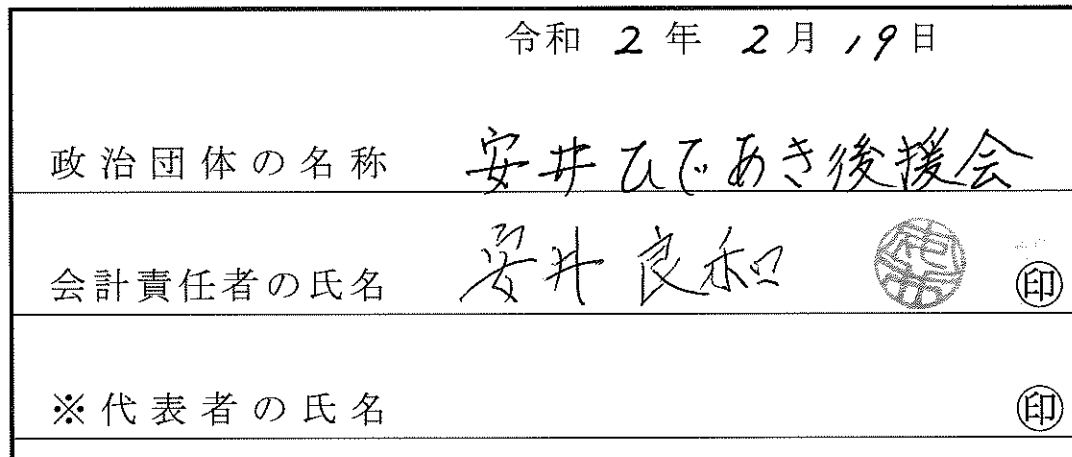 令和 2 年 2 月 19 日
政治団体の名称 安井ひであき後援会
会計責任者の氏名 安井良和 ㊞
※代表者の氏名 ㊞